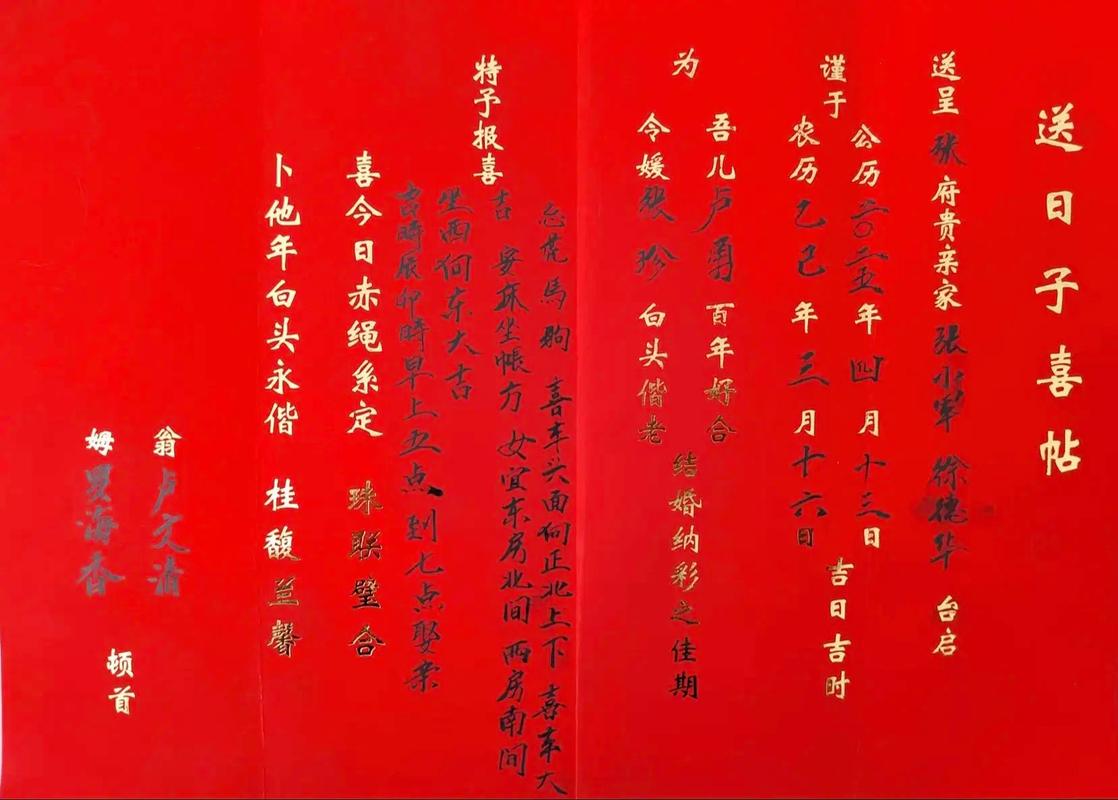 送日子喜帖
送呈 张 府贵亲家 张永军 徐德华 台启
谨于
公历二〇二五年四月十三日
农历乙巳年三月十六日
吉日吉时
为
吾儿卢勇百年好合
令媛张珍白头偕老
结婚纳彩之佳期
特予报喜
忌虎馬狗 喜车头面向正北上下 喜车大
吉 安床坐帳方 女宜东房北间 西房南间
坐西向东大吉
吉時辰卯時早上五点到七点娶亲
喜今日赤绳系定 珠联璧合
卜他年白头永偕 桂馥兰馨
翁 卢文清
姆 罗海香
顿首